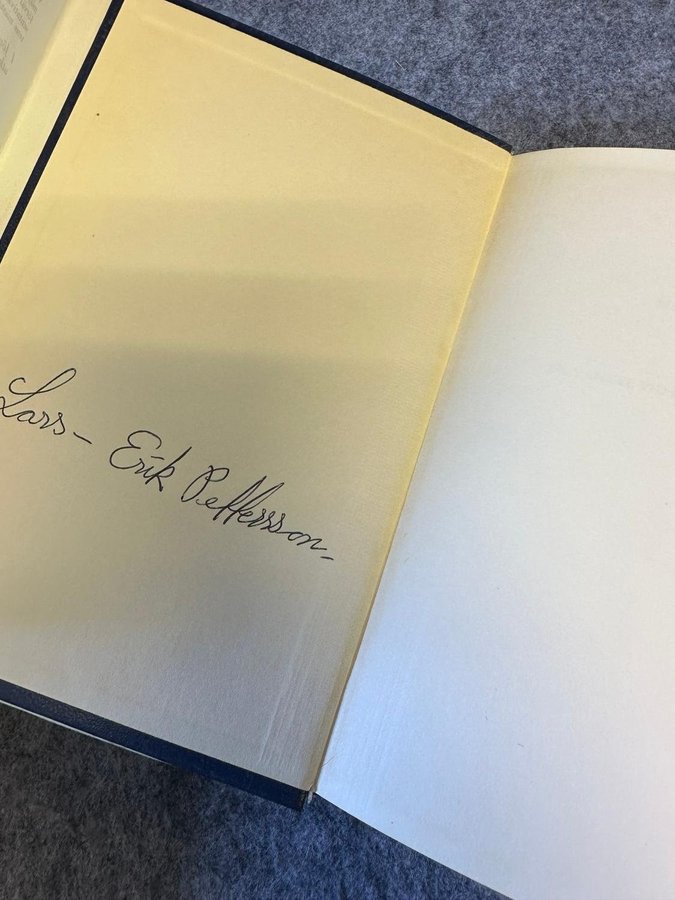 Lars- Erik Pettersson-